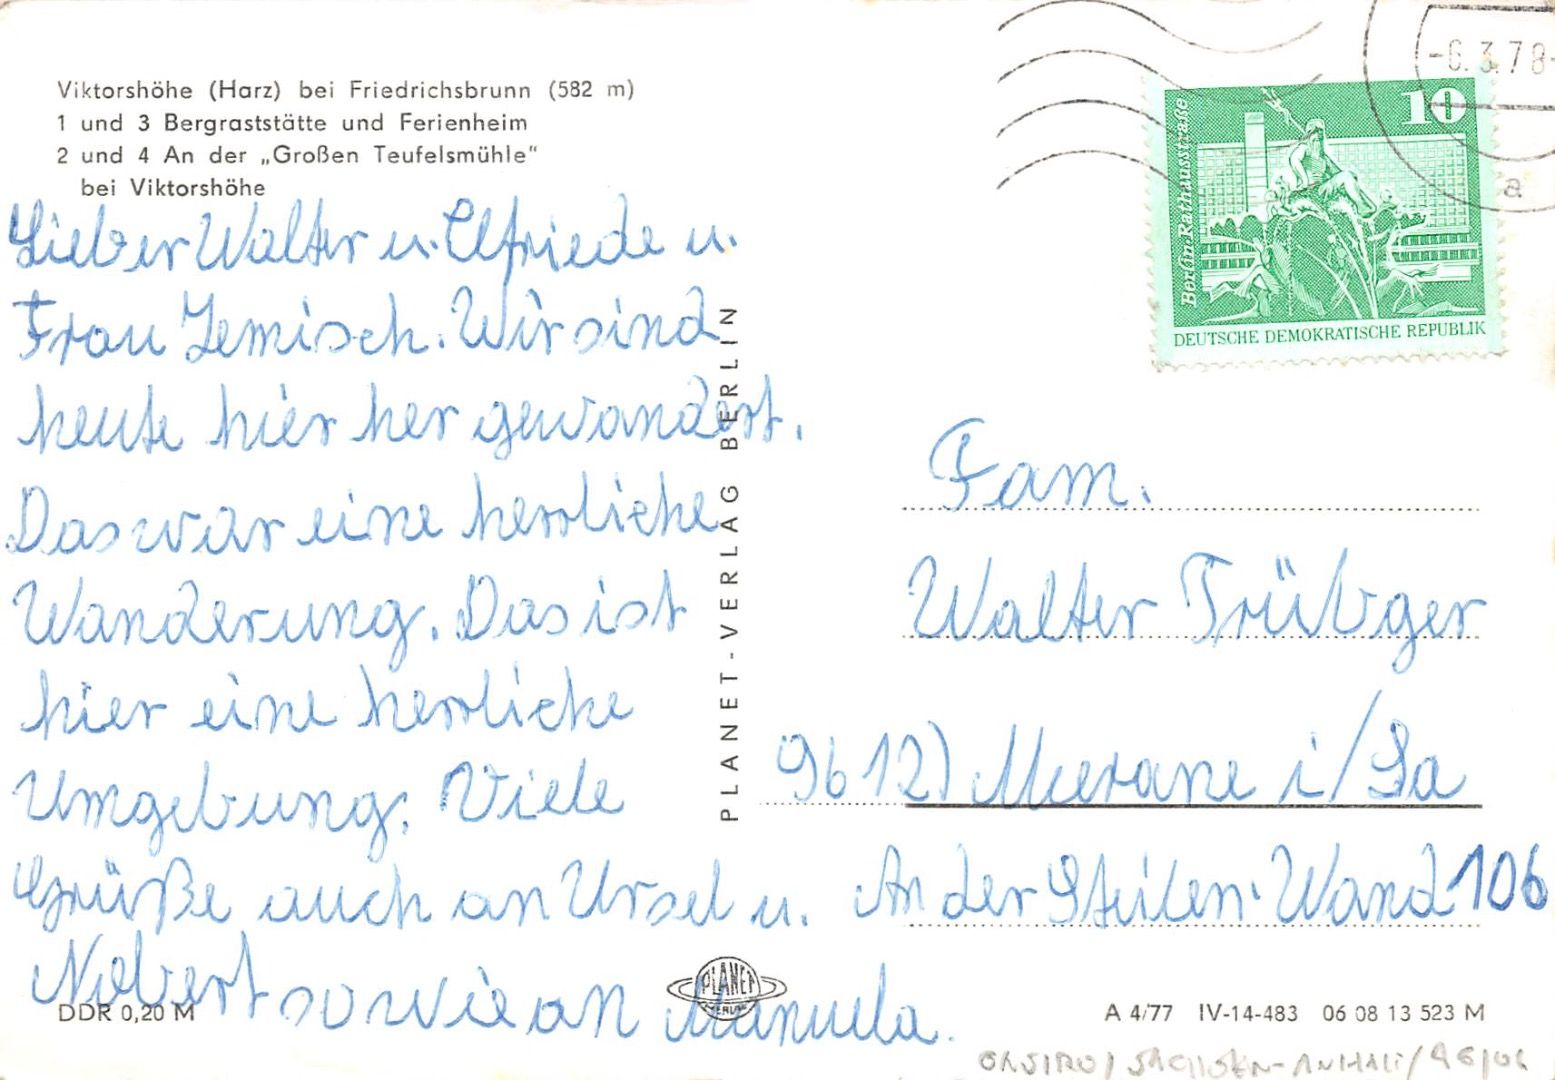 Viktorshöhe (Harz) bei Friedrichsbrunn (582 m)
1 und 3 Bergraststätte und Ferienheim
2 und 4 An der „Großen Teufelsmühle“
bei Viktorshöhe
Lieber Walter u. Elfriede u.
Frau Zemisch. Wir sind
heute hier her gewandert.
Das war eine herrliche
Wanderung. Das ist
hier eine herrliche
Umgebung. Viele
Grüße auch an Ursel u.
Nobert sowie an Manuela.
DDR 0,20 M
PLANET-VERLAG BERLIN
PLANET
BERLIN
-6.3.78-
a
10
Berlin-Rathausstraße
DEUTSCHE DEMOKRATISCHE REPUBLIK
Fam.
Walter Trübger
9612) Meerane i/Sa
An der Steilen-Wand 106
A 4/77 IV-14-483 06 08 13 523 M
SACHSEN-ANHALT